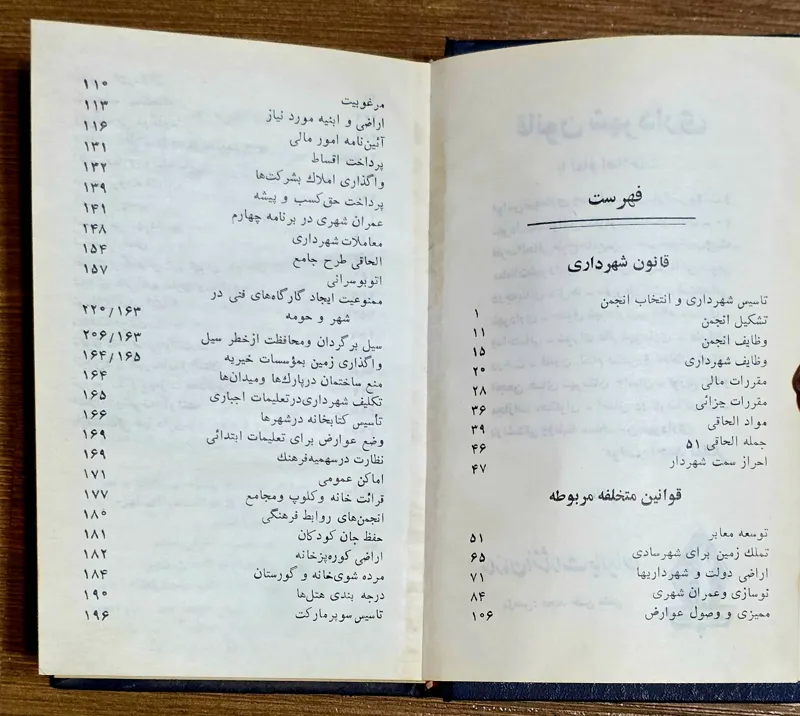 فهرست
قانون شهرداری
تاسیس شهرداری و انتخاب انجمن ۱
تشکیل انجمن ۱۱
وظایف انجمن ۱۵
وظایف شهرداری ۲۰
مقررات مالی ۲۸
مقررات جزائی ۳۶
مواد الحاقی ۳۹
جمله الحاقی ۵۱ ۴۶
احراز سمت شهردار ۴۷
قوانین متخلفه مربوطه
توسعه معابر ۵۱
تملك زمین برای شهرسادی ۶۵
اراضی دولت و شهرداریها ۷۱
نوسازی وعمران شهری ۸۴
ممیزی و وصول عوارض ۱۰۶
مرغوبیت ۱۱۰
اراضی و ابنیه مورد نیاز ۱۱۳
آئین‌نامه امور مالی ۱۱۶
پرداخت اقساط ۱۳۱
واگذاری املاك بشرکت‌ها ۱۳۲
پرداخت حق‌کسب و پیشه ۱۳۹
عمران شهری در برنامه چهارم ۱۴۱
معاملات شهرداری ۱۴۸
الحاقی طرح جامع ۱۵۴
اتوبوسرانی ۱۵۷
ممنوعیت ایجاد گارگاه‌های فنی در
شهر و حومه ۲۲۰/۱۶۳
سیل برگردان ومحافظت ازخطر سیل ۲۰۶/۱۶۳
واگذاری زمین بمؤسسات خیریه ۱۶۴/۱۶۵
منع ساختمان درپارك‌ها ومیدان‌ها ۱۶۴
تکلیف شهرداری‌درتعلیمات اجباری ۱۶۵
تأسیس کتابخانه درشهرها ۱۶۶
وضع عوارض برای تعلیمات ابتدائی ۱۶۹
نظارت درسهمیه‌فرهنك ۱۶۹
اماکن عمومی ۱۷۱
قرائت خانه وکلوپ ومجامع ۱۷۷
انجمن‌های روابط فرهنگی ۱۸۰
حفظ جان کودکان ۱۸۱
اراضی کوره‌پزخانه ۱۸۲
مرده شوی‌خانه و گورستان ۱۸۴
درجه بندی هتل‌ها ۱۹۰
تاسیس سوپرمارکت ۱۹۶